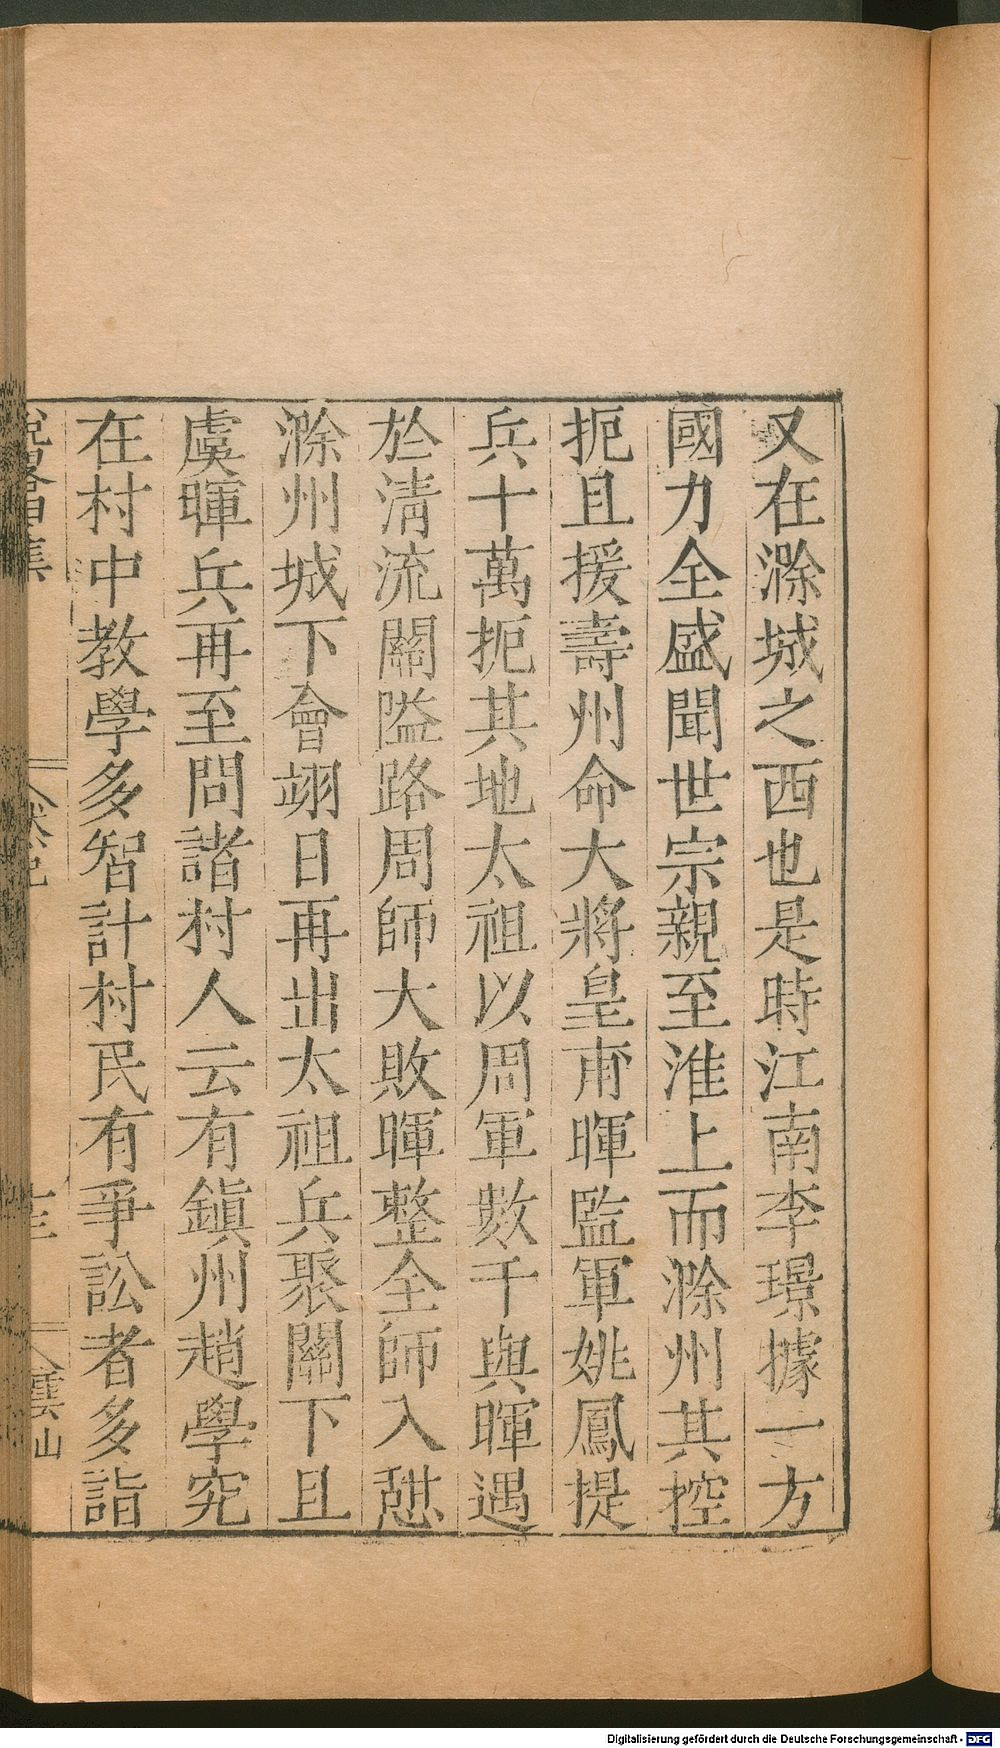 又在滁城之西也是時江南李璟據一方
國力全盛聞世宗親至淮上而滁州其控
扼且援壽州命大將皇甫暉監軍姚鳳提
兵十萬扼其地太祖以周軍數千與暉遇
於清流關隘路周師大敗暉整全師入憇
滁州城下會翊日再出太祖兵聚關下且
虞暉兵再至問諸村人云有鎮州趙學究
在村中教學多智計村民有爭訟者多詣
Digitalisierung gefördert durch die Deutsche Forschungsgemeinschaft - DFG